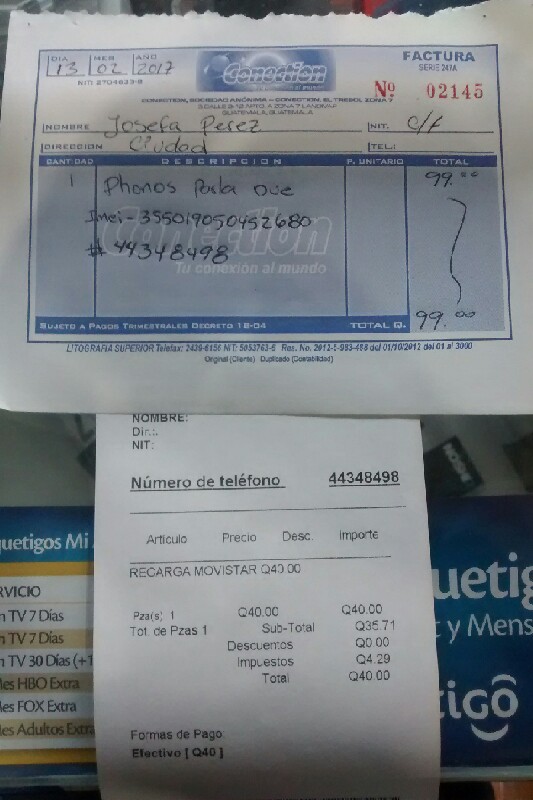 DIA MES AÑO
13 02 2017
Conection
FACTURA
SERIE 247A
Nº 02145
CONECTION, SOCIEDAD ANÓNIMA - CONECTION, EL TREBOL ZONA 7
GUATEMALA, GUATEMALA
NOMBRE Josefa Perez NIT. c/f
DIRECCION Ciudad TEL:
CANTIDAD DESCRIPCION P. UNITARIO TOTAL
1 Phonos Parla One 99.00
Imei - 355019050452680
# 44348498
Conection
Tu conexión al mundo
SUJETO A PAGOS TRIMESTRALES DECRETO 18-04 TOTAL Q. 99.00
Original (Cliente) Duplicado (Contabilidad)
NOMBRE:
Dir.:
NIT:
Número de teléfono 44348498
Articulo Precio Desc. Importe
RECARGA MOVISTAR Q40.00
Pza(s) 1 Q40.00 Q40.00
Tot. de Pzas 1 Sub-Total Q35.71
Descuentos Q0.00
Impuestos Q4.29
Total Q40.00
Formas de Pago:
Efectivo [ Q40 ]
quetigos Mi
RVICIO
n TV 7 Días
n TV 7 Días
n TV 30 Días (+1
les HBO Extra
les FOX Extra
les Adultos Extra
uetig
t y Mens
tigo